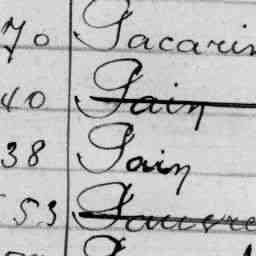 70 Pacarin
40 Pain
38 Pain
53 Pauvre